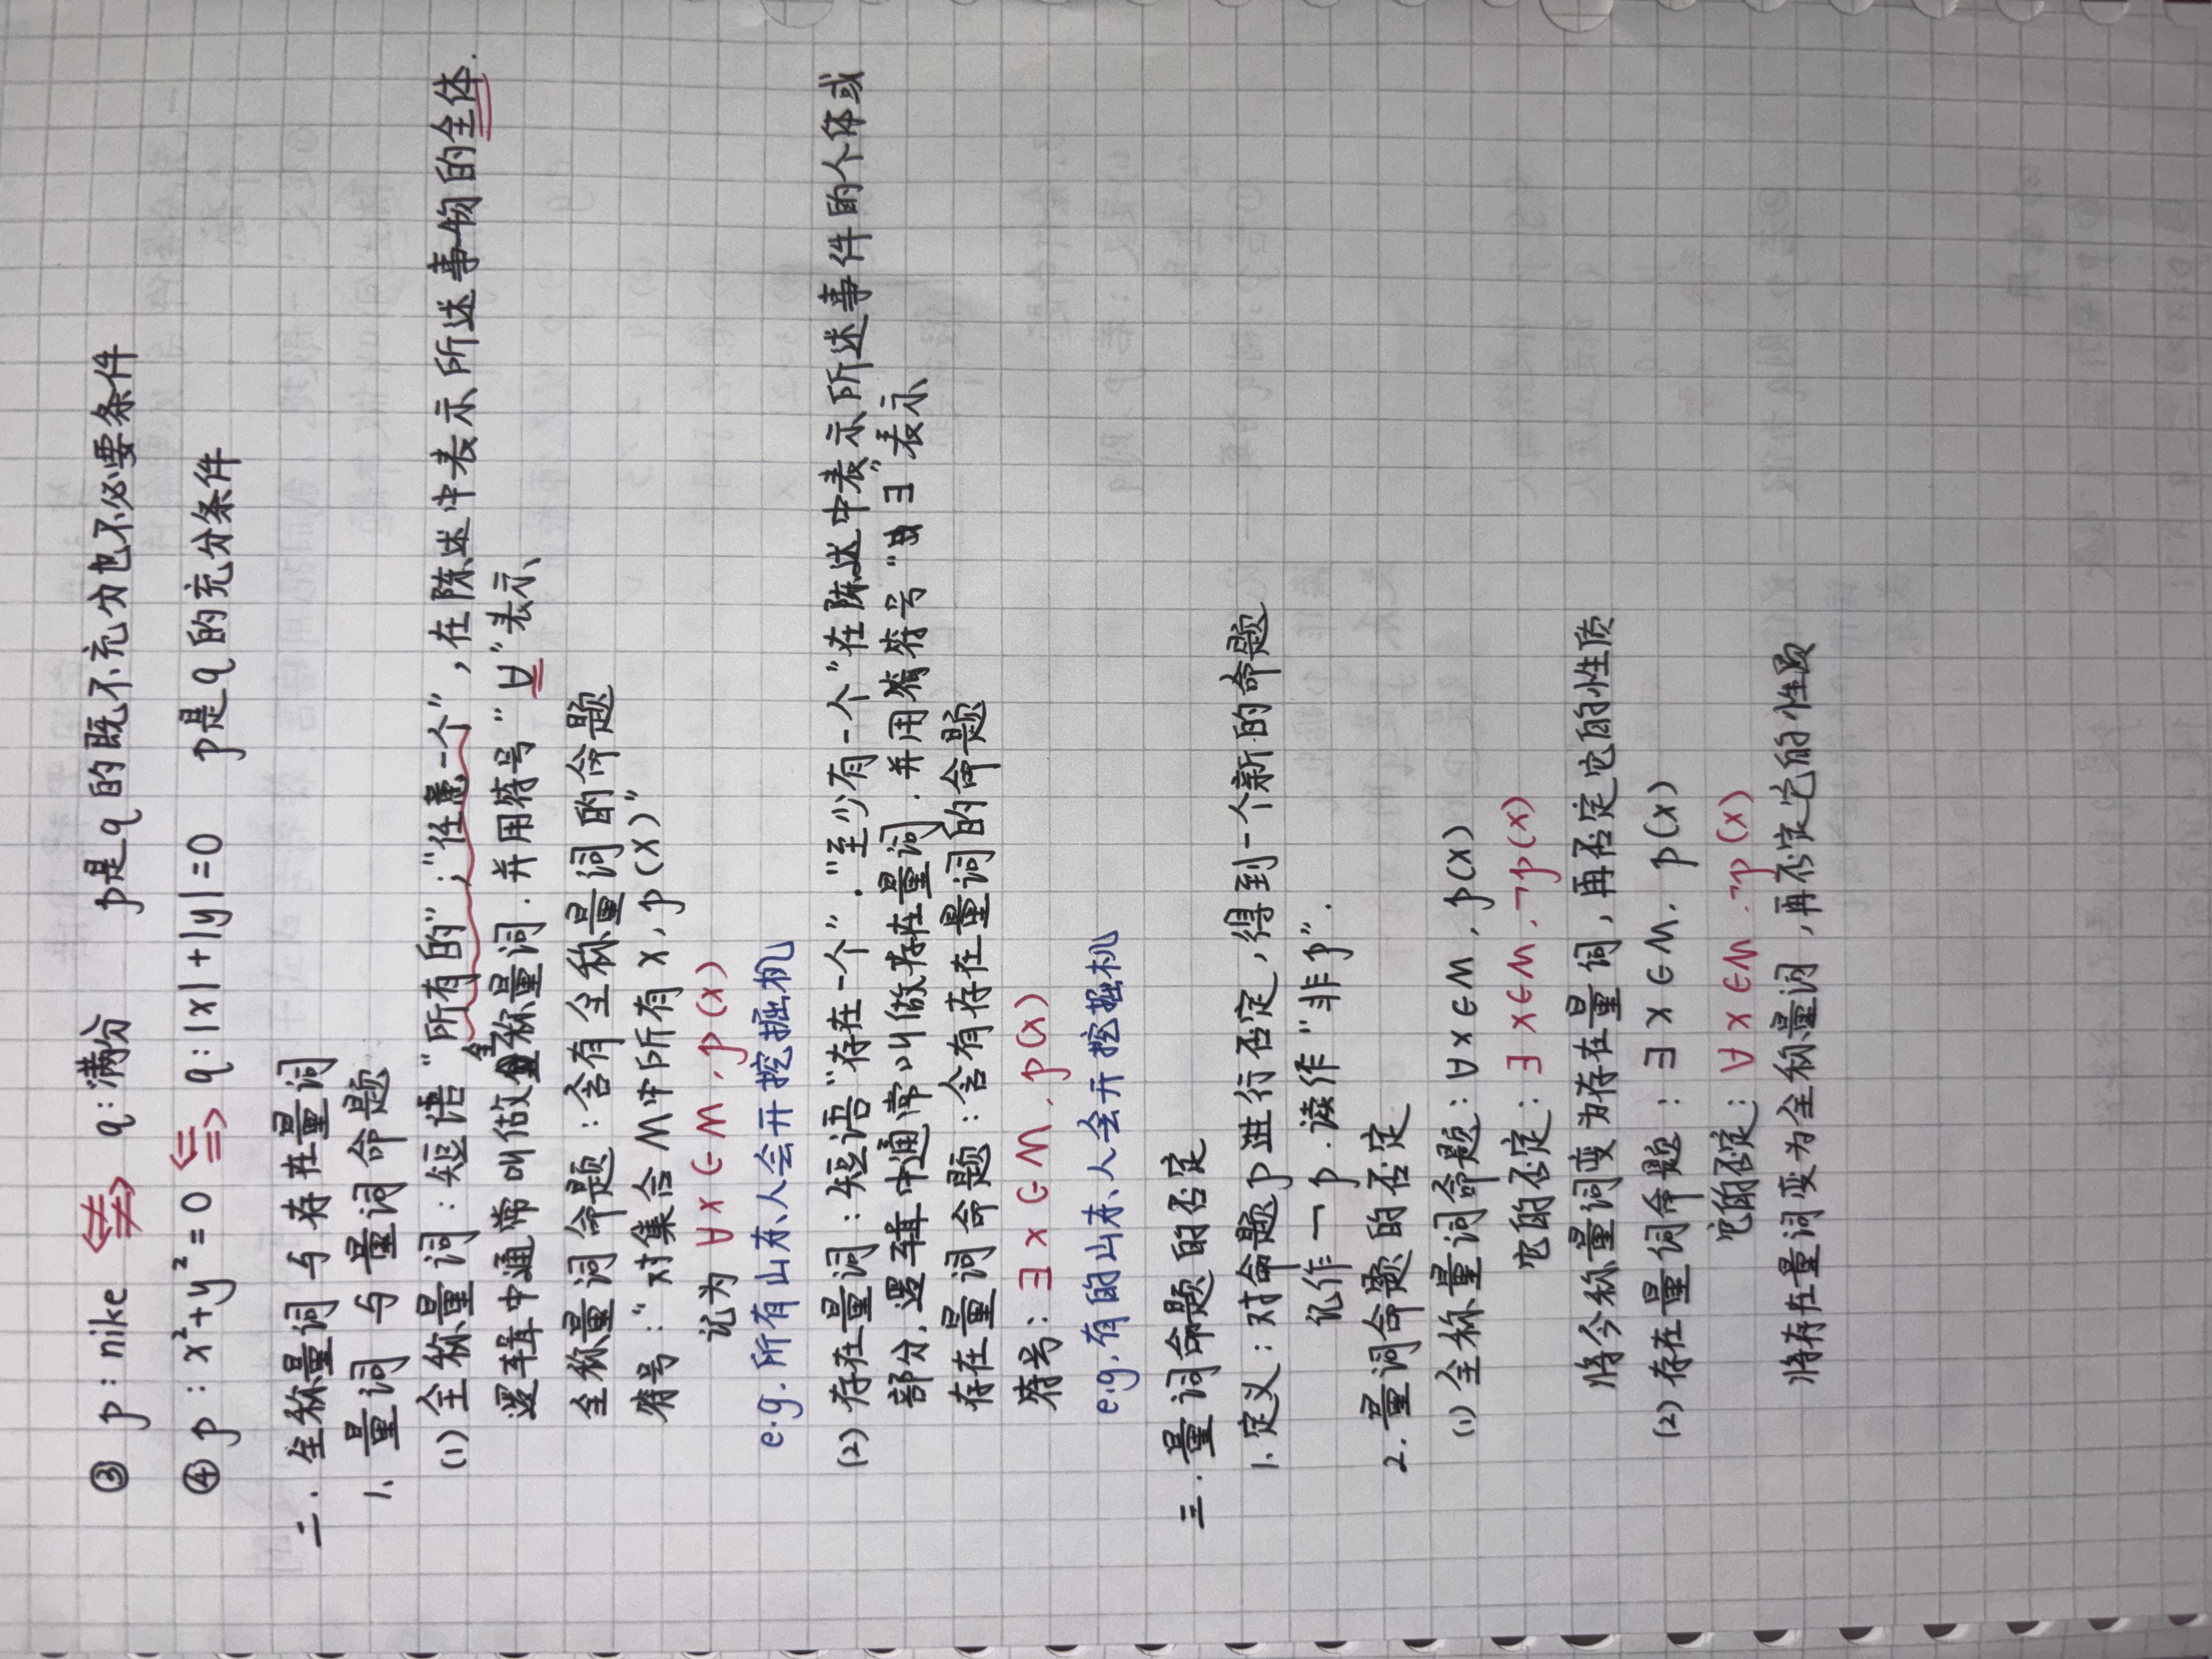 ③ p:nike ⇎ q:满分 p是q的既不充分也不必要条件
④ p:x²+y²=0 ⇔ q:|x|+|y|=0 p是q的充分条件
二.全称量词与存在量词
1、量词与量词命题
(1)全称量词:短语"所有的";"任意一个",在陈述中表示所述事物的全体.
逻辑中通常叫做全称量词.并用符号"∀"表示
全称量词命题:含有全称量词的命题
符号:"对集合M中所有x,p(x)"
记为 ∀x∈M,p(x)
e.g.所有山东人会开挖掘机
(2)存在量词:短语"存在一个"."至少有一个"在陈述中表示所述事件的个体或
部分,逻辑中通常叫做存在量词.并用符号"∃"表示
存在量词命题:含有存在量词的命题
符号:∃x∈M,p(x)
e.g.有的山东人会开挖掘机
三.量词命题的否定
1.定义:对命题p进行否定,得到一个新的命题
记作¬p.读作"非p".
2.量词命题的否定
(1)全称量词命题:∀x∈M,p(x)
它的否定:∃x∈M,¬p(x)
将全称量词变为存在量词,再否定它的性质
(2)存在量词命题:∃x∈M,p(x)
它的否定:∀x∈M,¬p(x)
将存在量词变为全称量词,再否定它的性质